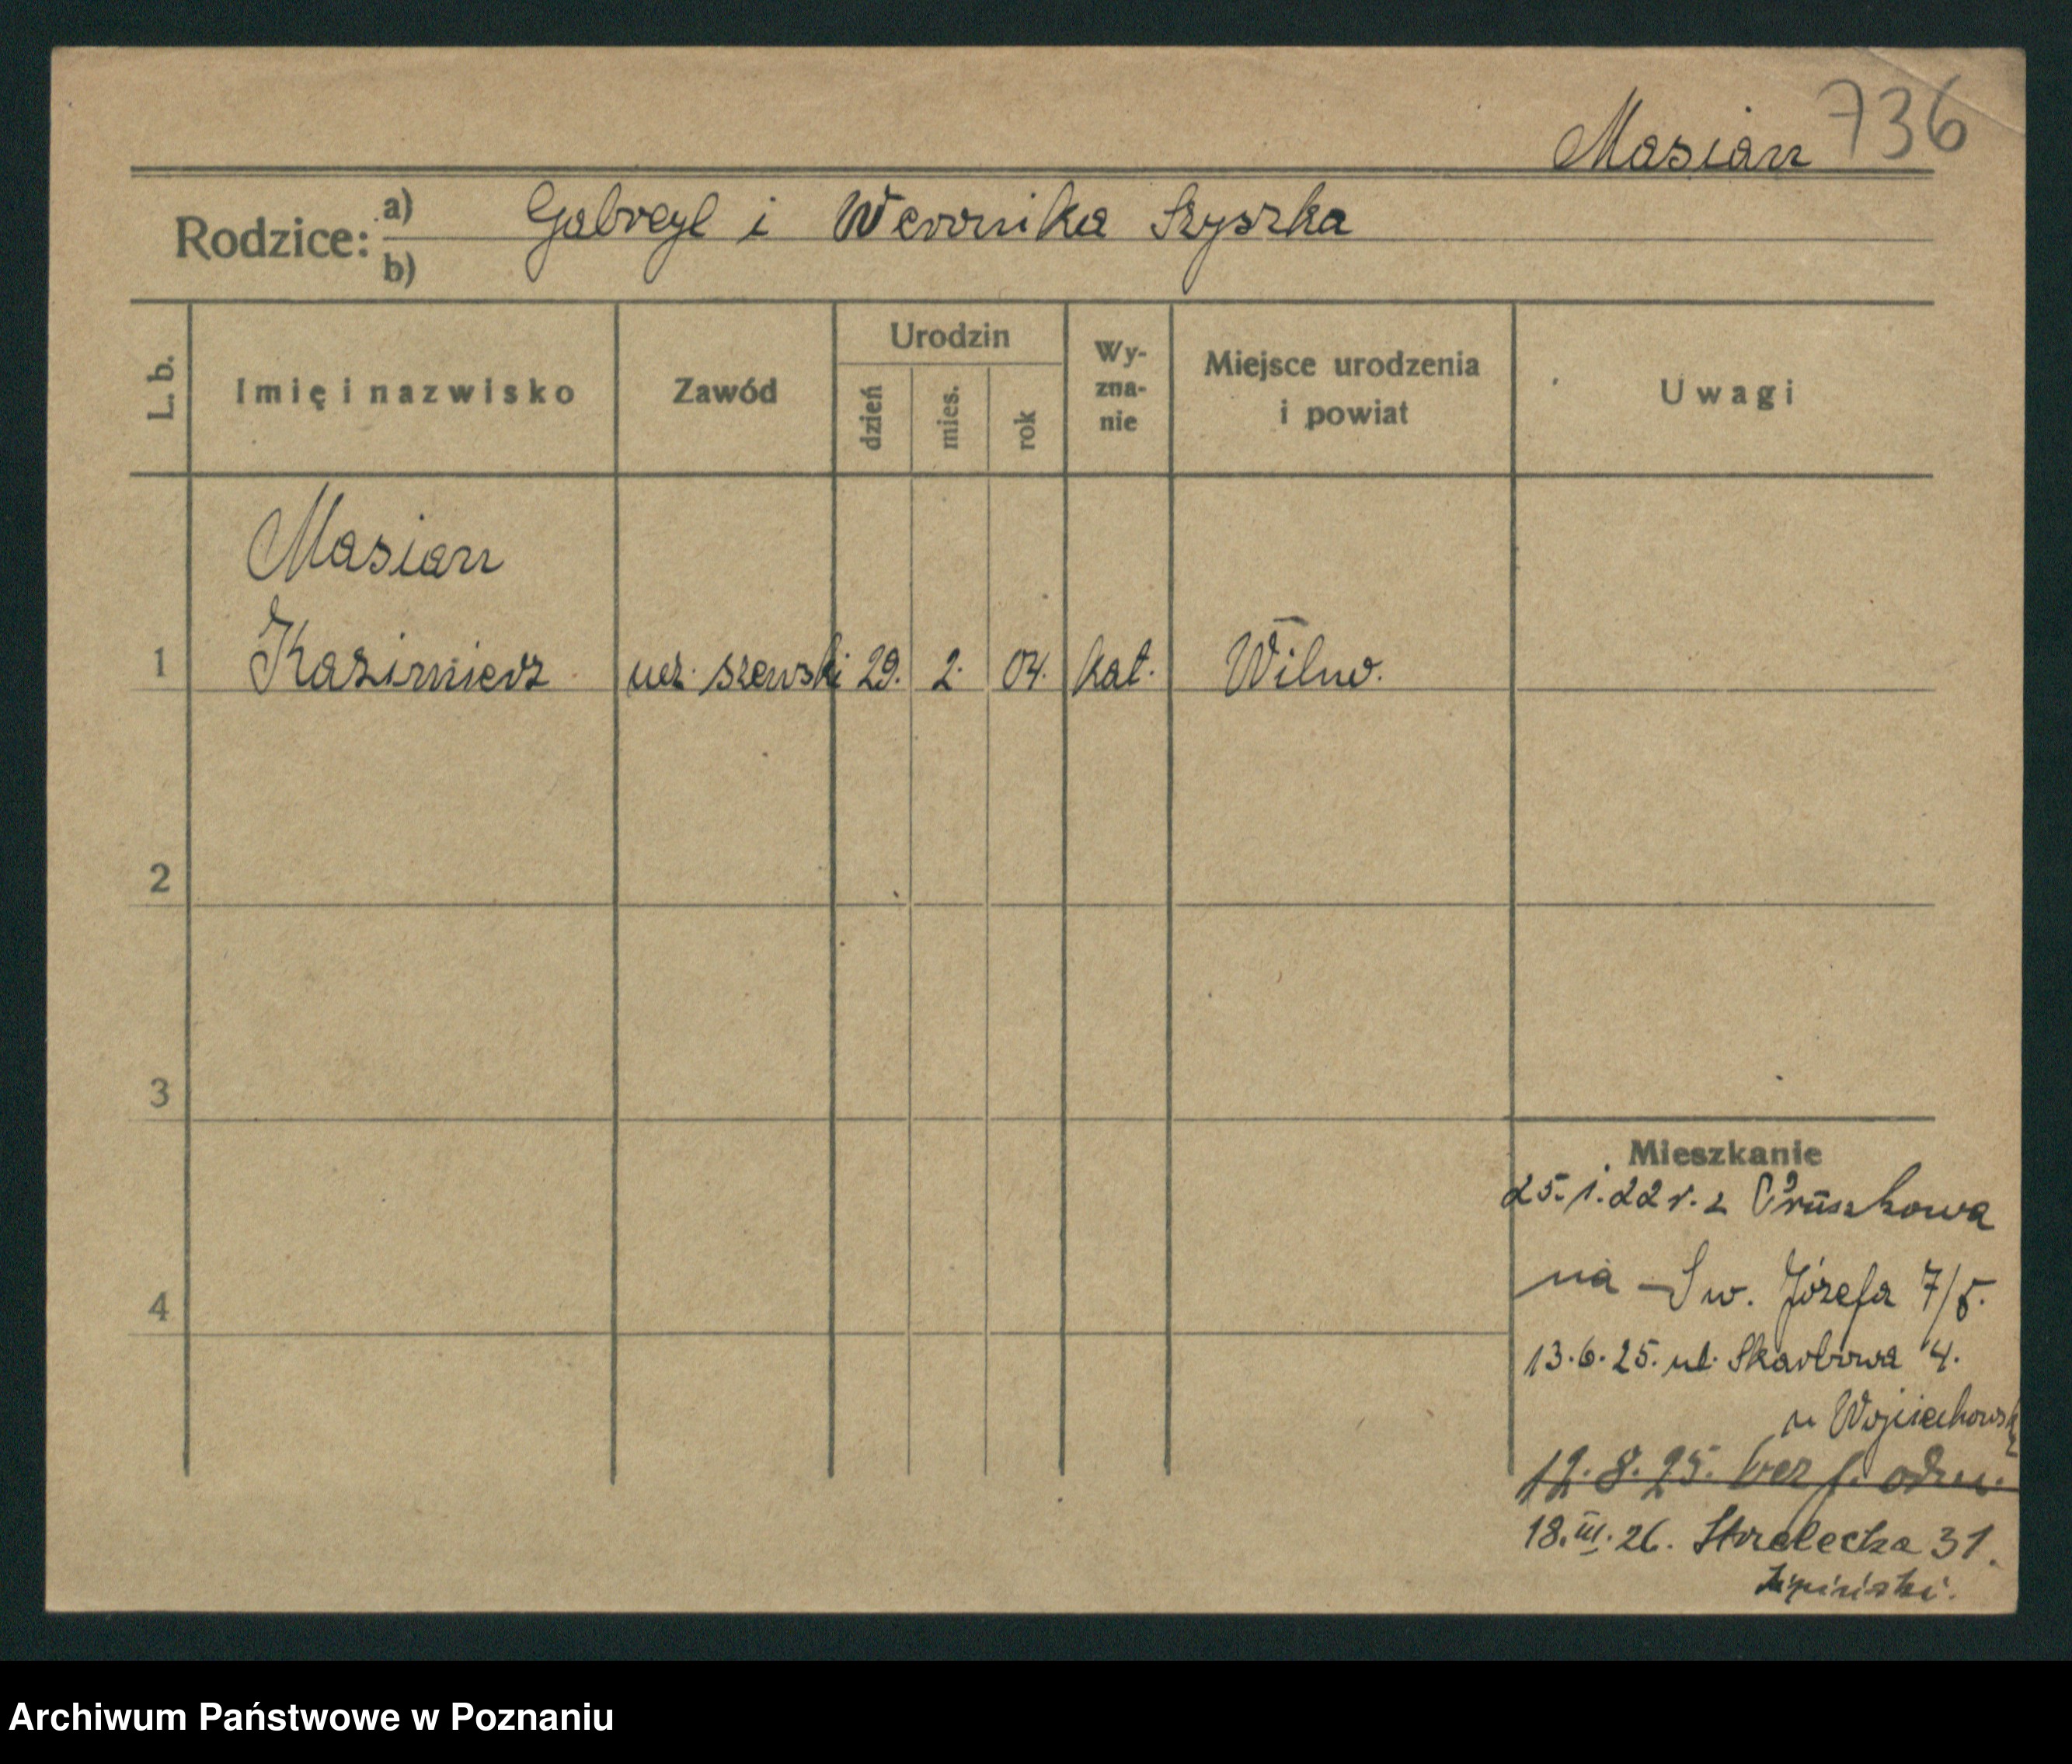 Masian 736
Rodzice: a) Gabryel i Weronika Szyszka
b)
L. b.
Imię i nazwisko
Zawód
Urodzin
dzień
mies.
rok
Wy-
zna-
nie
Miejsce urodzenia
i powiat
Uwagi
Masian
1 Kazimierz ucz. szewski 29. 2. 04. kat. Wilno.
2
3
4
Mieszkanie
25. 1. 22 r. z Pruszkowa
na Św. Józefa 7/5.
13.6.25. ul. Skarbowa 4.
u Wojciechowsk
12.8.25. bez p. odm.
18.III.26. Strzelecka 31.
Lipiński.
Archiwum Państwowe w Poznaniu